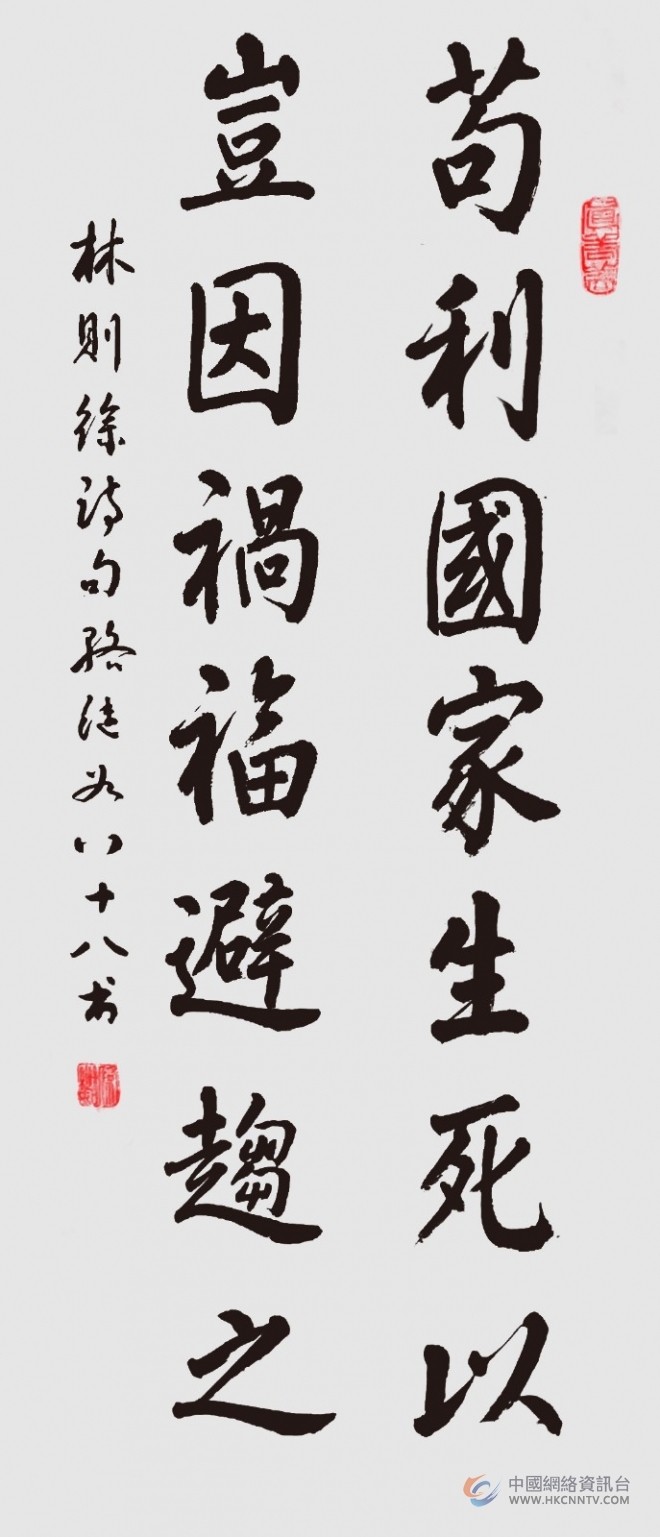 苟利國家生死以
豈因禍福避趨之
林則徐詩句駱八十八書
中國網絡資訊台
WWW.HKCNNTV.COM